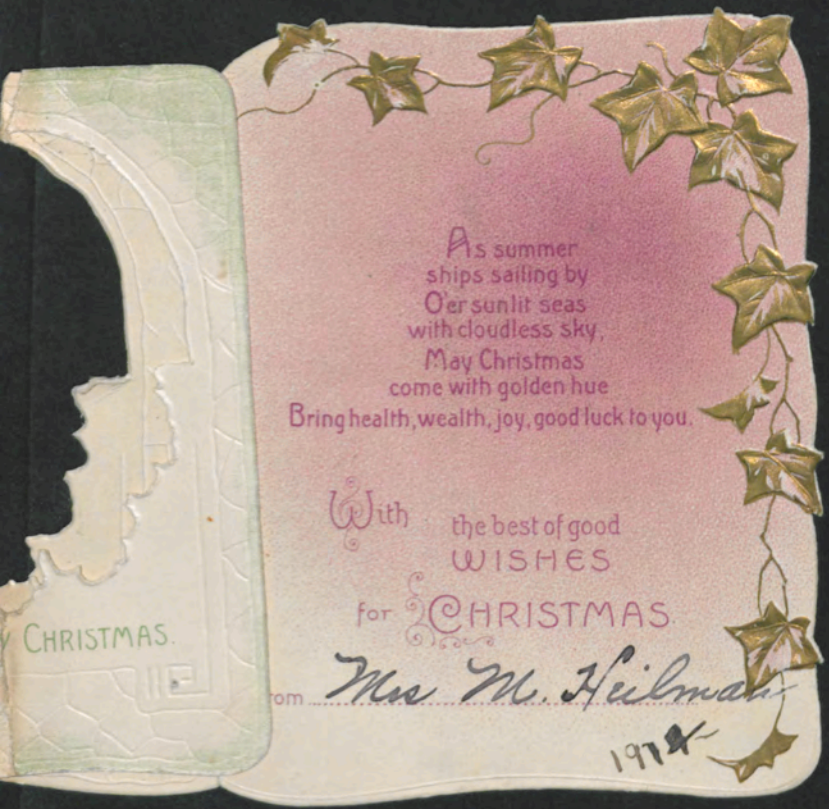 As summer
ships sailing by
O'er sunlit seas
with cloudless sky,
May Christmas
come with golden hue
Bring health, wealth, joy, good luck to you.
With the best of good
WISHES
for CHRISTMAS
om Mrs M. Heilman
Y CHRISTMAS.